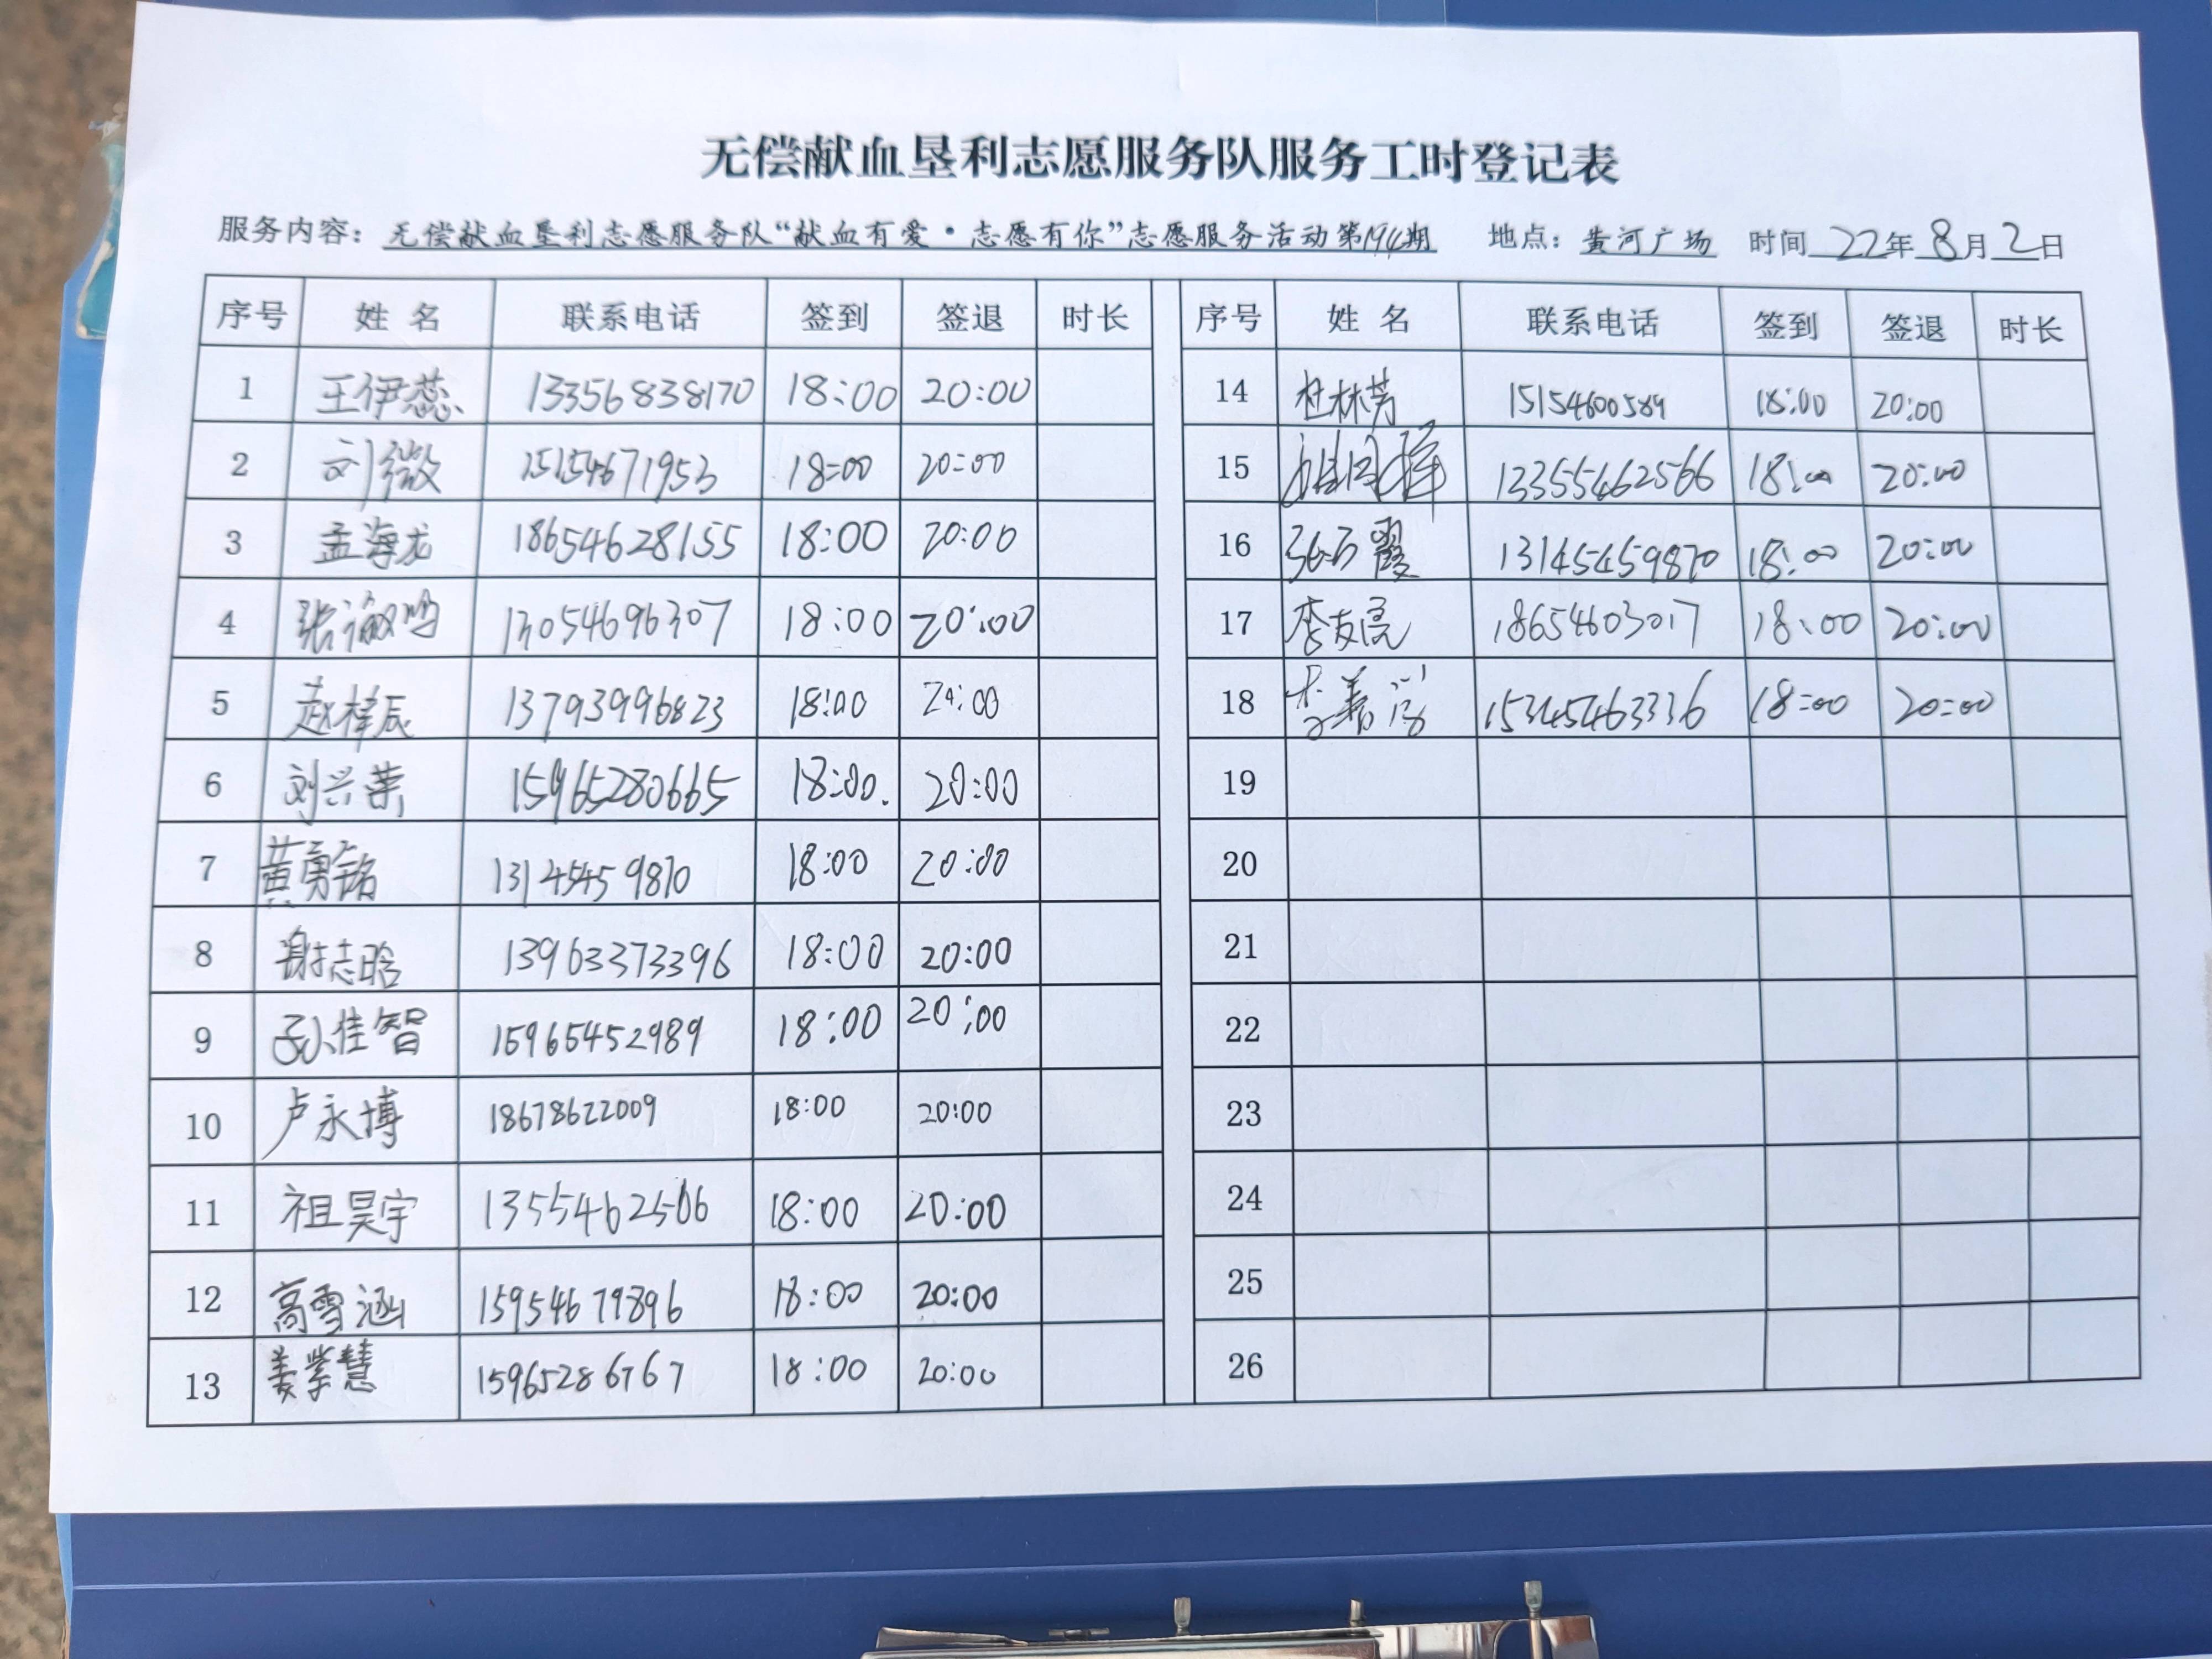 无偿献血垦利志愿服务队服务工时登记表
服务内容：无偿献血垦利志愿服务队“献血有爱·志愿有你”志愿服务活动第194期 地点：黄河广场 时间 22年 8月 2日
序号 姓名 联系电话 签到 签退 时长 序号 姓名 联系电话 签到 签退 时长
1 王伊蕊 13356838170 18:00 20:00 14 杜林芳 15154600589 18:00 20:00
2 刘微 15154671953 18:00 20:00 15 13355462566 18:00 20:00
3 孟海龙 18654628155 18:00 20:00 16 13145459870 18:00 20:00
4 张 13054696307 18:00 20:00 17 李友亮 18654603017 18:00 20:00
5 赵梓辰 13793996823 18:00 20:00 18 15345463336 18:00 20:00
6 刘兴荣 15965280665 18:00. 20:00 19
7 黄勇铭 13145459870 18:00 20:00 20
8 谢志晗 13963373396 18:00 20:00 21
9 孙佳智 15965452989 18:00 20:00 22
10 卢永博 18678622009 18:00 20:00 23
11 祖昊宇 1355462566 18:00 20:00 24
12 高雪涵 15954679896 18:00 20:00 25
13 姜紫慧 15965286767 18:00 20:00 26